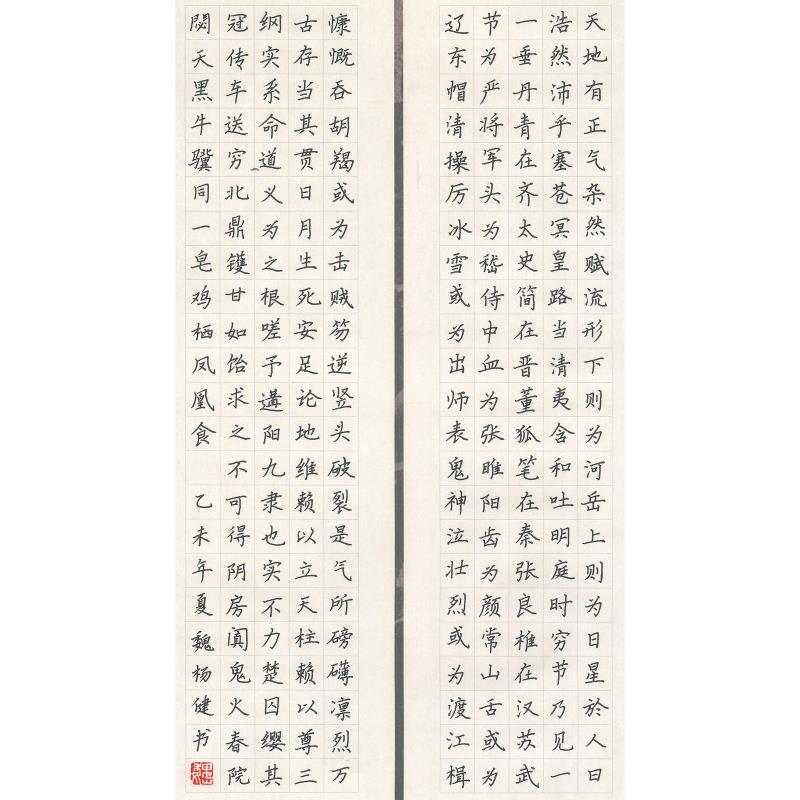 天地有正气杂然赋流形下则为河岳上则为日星於人曰
浩然沛乎塞苍冥皇路当清夷含和吐明庭时穷节乃见一
一垂丹青在齐太史简在晋董狐笔在秦张良椎在汉苏武
节为严将军头为嵇侍中血为张睢阳齿为颜常山舌或为
辽东帽清操厉冰雪或为出师表鬼神泣壮烈或为渡江楫
慷慨吞胡羯或为击贼笏逆竖头破裂是气所磅礴凛烈万
古存当其贯日月生死安足论地维赖以立天柱赖以尊三
纲实系命道义为之根嗟予遘阳九隶也实不力楚囚缨其
冠传车送穷北鼎镬甘如饴求之不可得阴房阗鬼火春院
閟天黑牛骥同一皂鸡栖凤凰食 乙未年夏魏杨健书